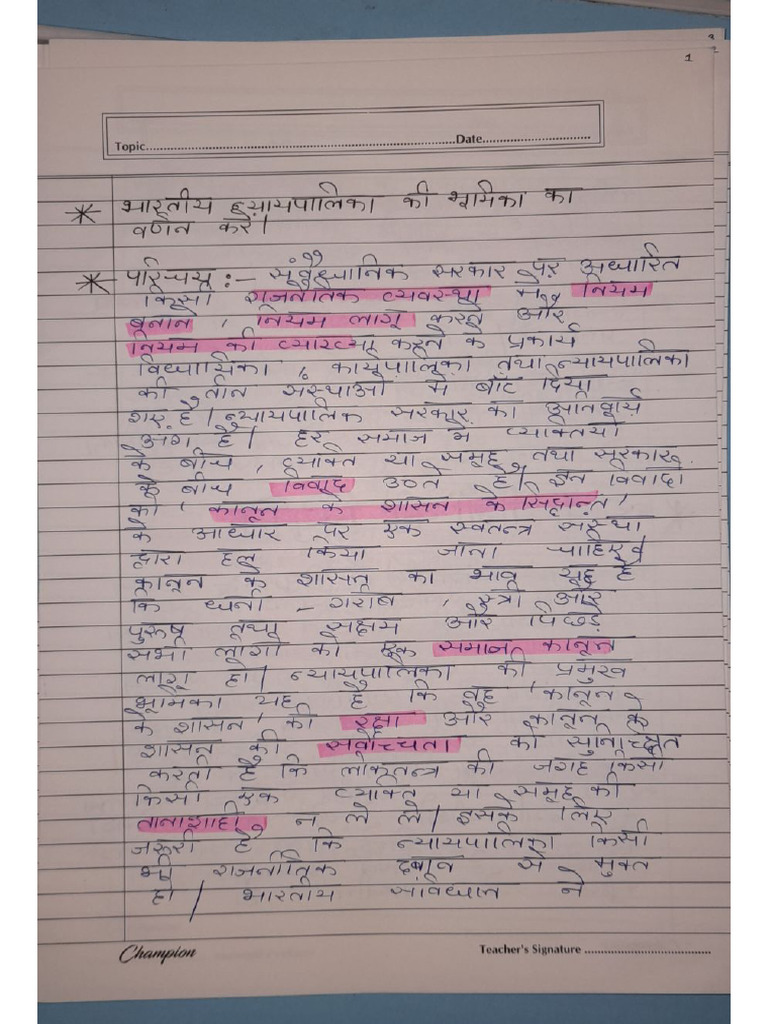 1
Topic Date
* भारतीय न्यायपालिका की भूमिका का
वर्णन करें।
* परिचय :- संवैधानिक सरकार पर अधारित
किसी राजनीतिक व्यवस्था में नियम
बनाने, नियम लागू करने और
नियम की व्याख्या करने के प्रकार्य
विधायिका, कार्यपालिका तथा न्यायपालिका
की तीन संस्थाओं में बाँट दिया
गए है। न्यायपालिक सरकार का अनिवार्य
अंग है। हर समाज में व्यक्तियों
के बीच, व्यक्ति या समूह तथा सरकार
के बीच विवाद उठते है। इन विवादों
को 'कानून के शासन के सिद्धान्त'
के आधार पर एक स्वतन्त्र संस्था
द्वारा हल किया जाना चाहिए।
कानून के शासन का भाव यह है
कि धनी - गरीब, स्त्री और
पुरुष तथा सक्षम और पिछड़े
सभी लोगों को एक समान कानून
लागू हो। न्यायपालिका की प्रमुख
भूमिका यह है कि वह 'कानून
के शासन' की रक्षा और कानून के
शासन की सर्वोच्चता को सुनिश्चित
करती है कि लोकतन्त्र की जगह किसी
किसी एक व्यक्ति या समूह की
तानाशाही न ले ले। इसके लिए
जरूरी है कि न्यायपालिका किसी
भी राजनीतिक दबाव से मुक्त
हो। भारतीय संविधान ने
Champion Teacher's Signature